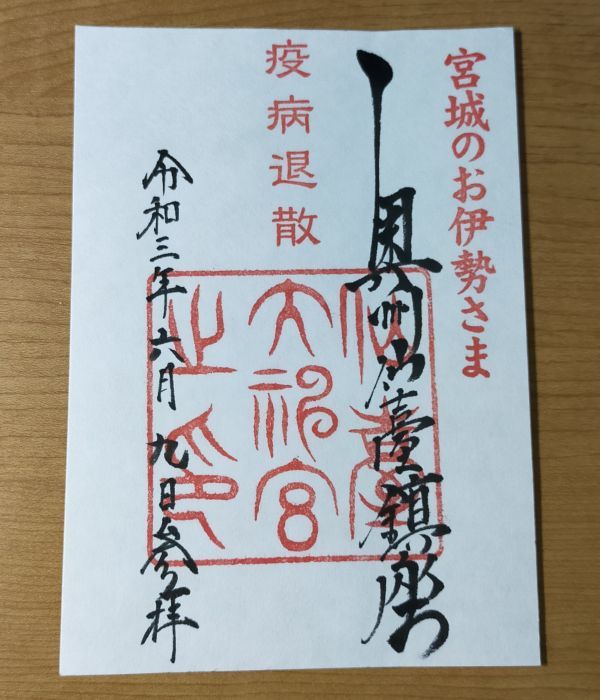 宮城のお伊勢さま
奥州仙臺鎮座
疫病退散
仙臺
大神宮
之印
令和三年六月九日参拝